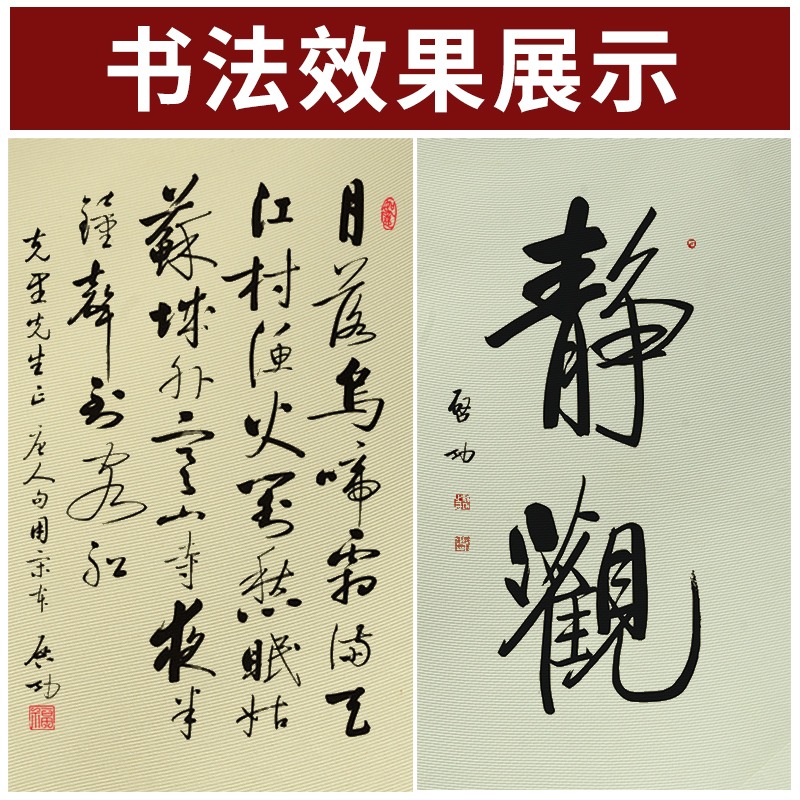 书法效果展示
月落烏啼霜滿天
江村漁火對愁眠姑
蘇城外寒山寺夜半
鐘聲到客船
克先生正 唐人句用宋本 启功
静觀
启功